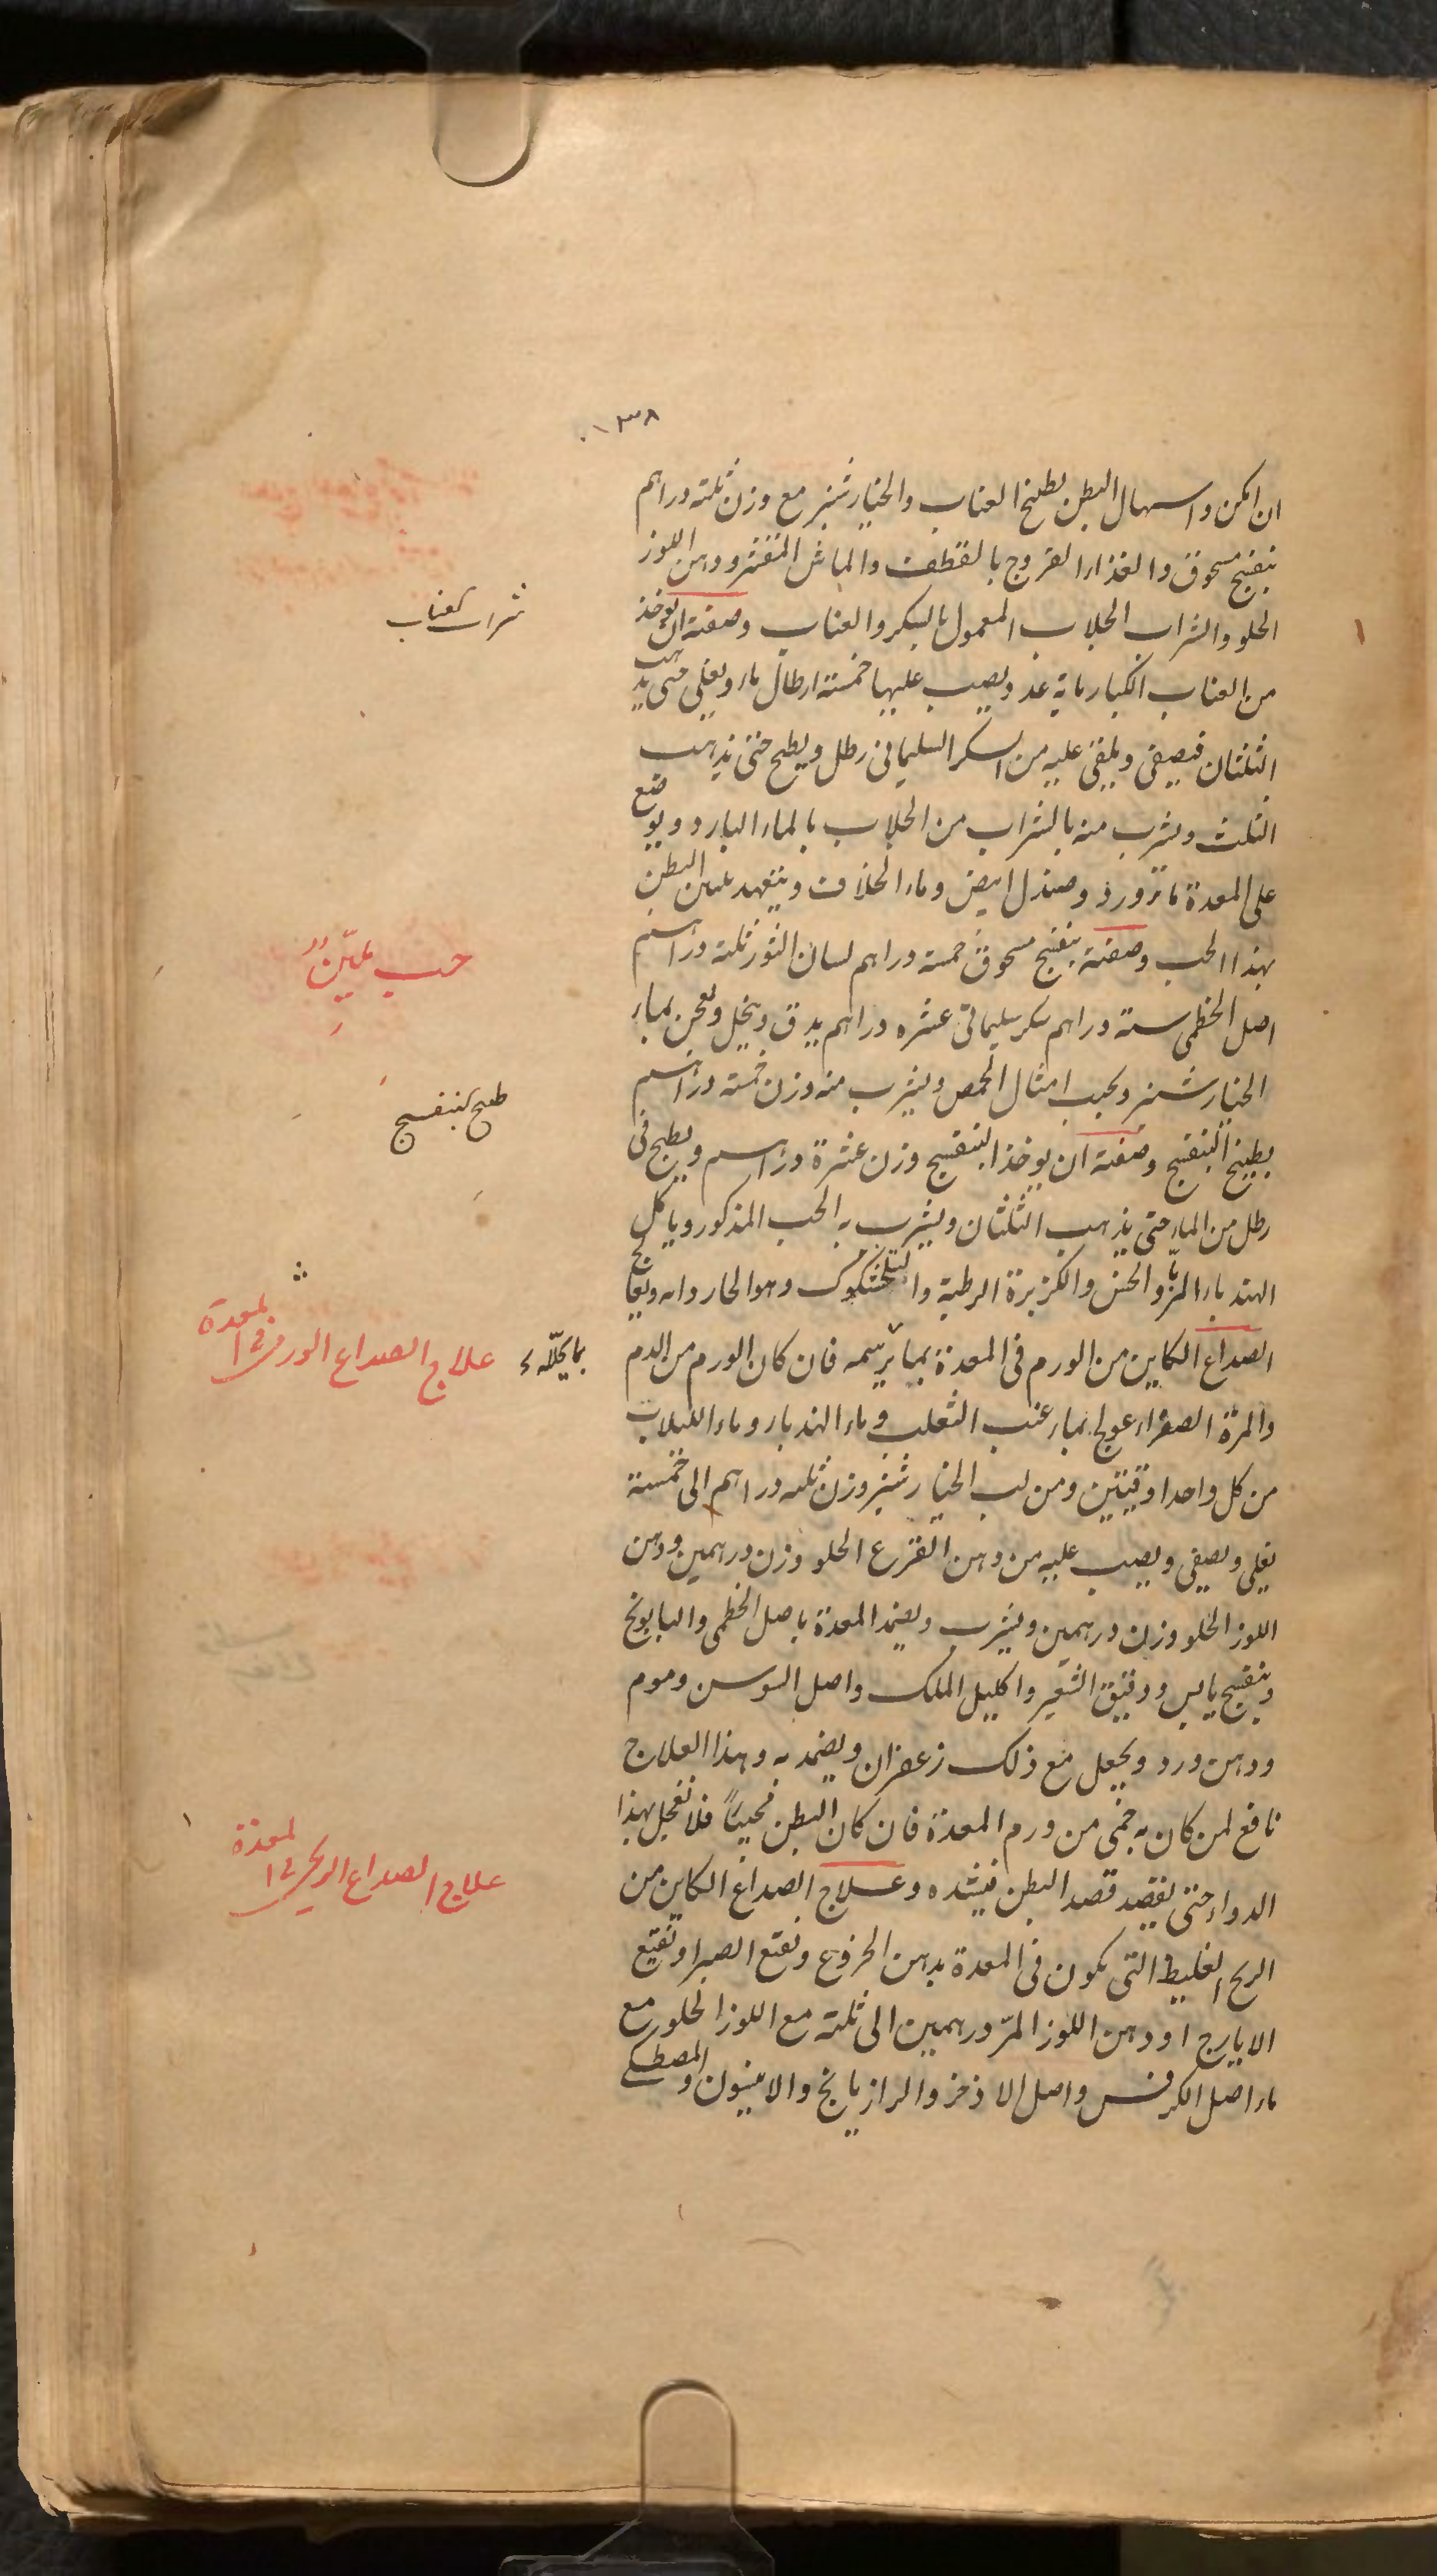 ٠١٣٨
ان امكن واسهال البطن بطبخ العناب والخيارشنبر مع وزن ثلثه دراهم
بنفسج مسحوق والغذاء الفروج بالقطف والماش المقشر ودهن اللوز
الحلو والشراب الجلاب المعمول بالسكر والعناب وصفته ان يوخذ
شراب العناب
من العناب الكبار ماية عدد ويصب عليها خمسة ارطال ماء ويغلى حتى يذهب
الثلثان فيصفى ويلقى عليه من السكر السليمانى رطل ويطبخ حتى يذهب
الثلث ويشرب منه بالشراب من الجلاب بالماء البارد ويوضع
على المعدة ماورد وصندل ابيض وماء الخلاف ويتعهد البطن
بهذا الحب وصفته بنفسج مسحوق خمسة دراهم لسان الثور ثلثه دراهم
حب ملين
اصل الخطمى ستة دراهم سكر سليمانى عشره دراهم يدق وينخل ويعجن بماء
الخيارشنبر ويحبب امثال الحمص ويشرب منه وزن خمسة دراهم
طبخ البنفسج
بطبخ البنفسج وصفته ان يوخذ البنفسج وزن عشرة دراهم ويطبخ فى
رطل من الماء حتى يذهب الثلثان ويشرب به الحب المذكور وياكل
الهندباء المربا والخس والكزبرة الرطبة و وهو الحار ويعالج
الصداع الكاين من الورم فى المعدة بما يرسمه فان كان الورم من الدم
بما يحلله
علاج الصداع الورمى فى المعدة
والمرة الصفراء عولج بماء عنب الثعلب وماء الهندباء وماء اللبلاب
من كل واحد اوقيتين ومن لب الخيارشنبر وزن ثلثه دراهم الى خمسة
يغلى ويصفى ويصب عليه من دهن القرع الحلو وزن درهمين ودهن
اللوز الحلو وزن درهمين ويشرب ويضمد المعدة باصل الخطمى والبابونج
وبنفسج يابس ودقيق الشعير واكليل الملك واصل السوسن وموم
ودهن ورد ويجعل مع ذلك زعفران ويضمد به وهذا العلاج
نافع لمن كان به حمى من ورم المعدة فان كان البطن فلا تعجل بهذا
الدواء حتى يقصد قصد البطن فيشده وعلاج الصداع الكاين من
علاج الصداع الريحى فى المعدة
الريح الغليظ التى تكون فى المعدة بدهن الخروع ونقيع الصبر او نقيع
الايارج او دهن اللوز المر درهمين الى ثلثة مع اللوز الحلو مع
ماء اصل الكرفس واصل الاذخر والرازيانج والانيسون والمصطكى